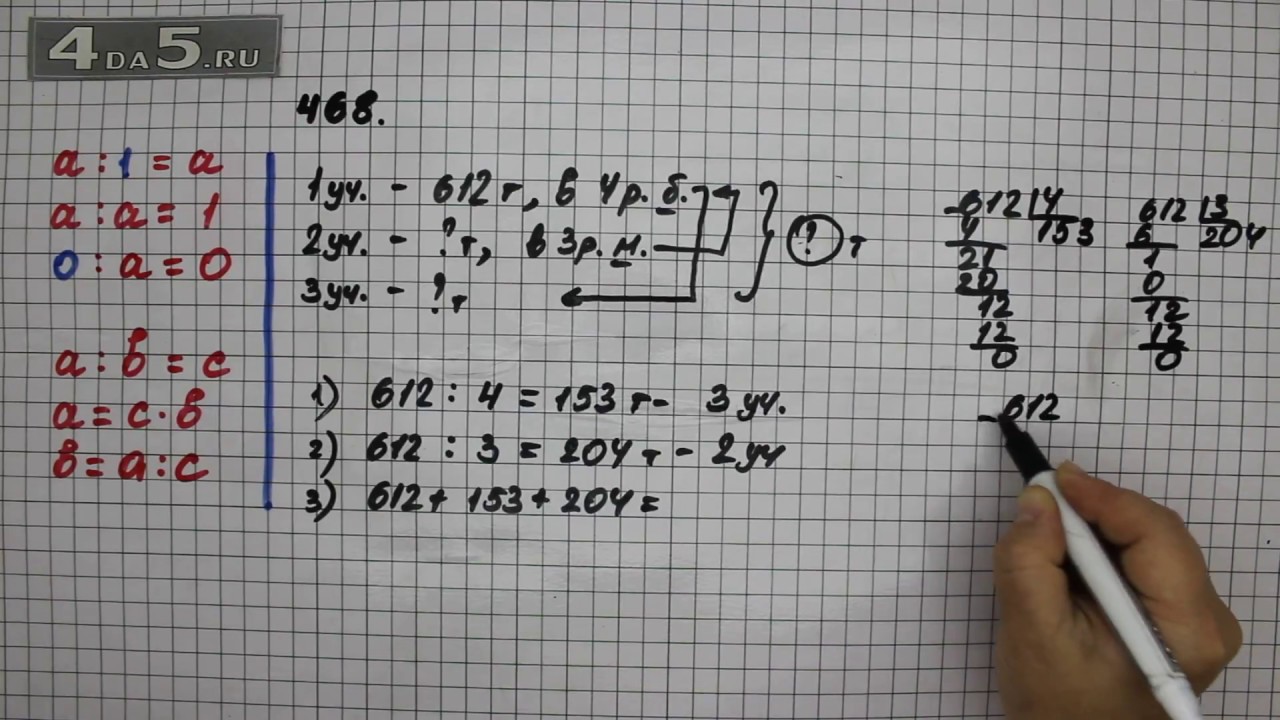 4DA5.RU
468.
a : 1 = a
a : a = 1
0 : a = 0
a : b = c
a = c · b
b = a : c
1 уч. - 612 т, в 4 р. б.
2 уч. - ? т, в 3 р. м.
3 уч. - ? т
? т
1) 612 : 4 = 153 т - 3 уч.
2) 612 : 3 = 204 т - 2 уч
3) 612 + 153 + 204 =
612 | 4
4 153
21
20
12
12
0
612 | 3
6 204
1
0
12
12
0
612